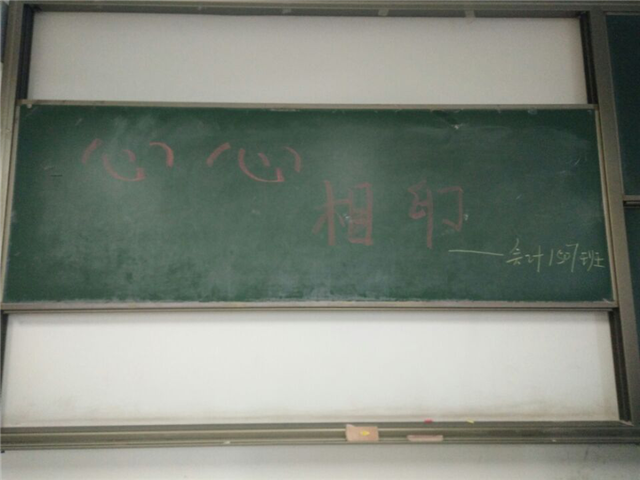 心心
相印
——会计1507班